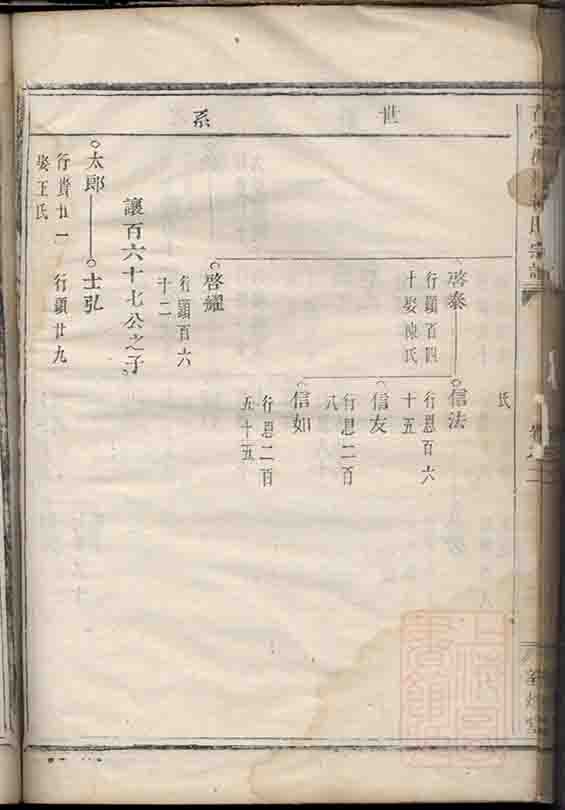 世系
氏
啓泰
行顯百四
十娶陳氏
信法
行恩百六
十五
信友
行恩二百
八
信如
行恩二百
五十五
啓耀
行顯百六
十二
讓百六十七公之子
太郎
行貴廿一
娶王氏
士弘
行顯廿九